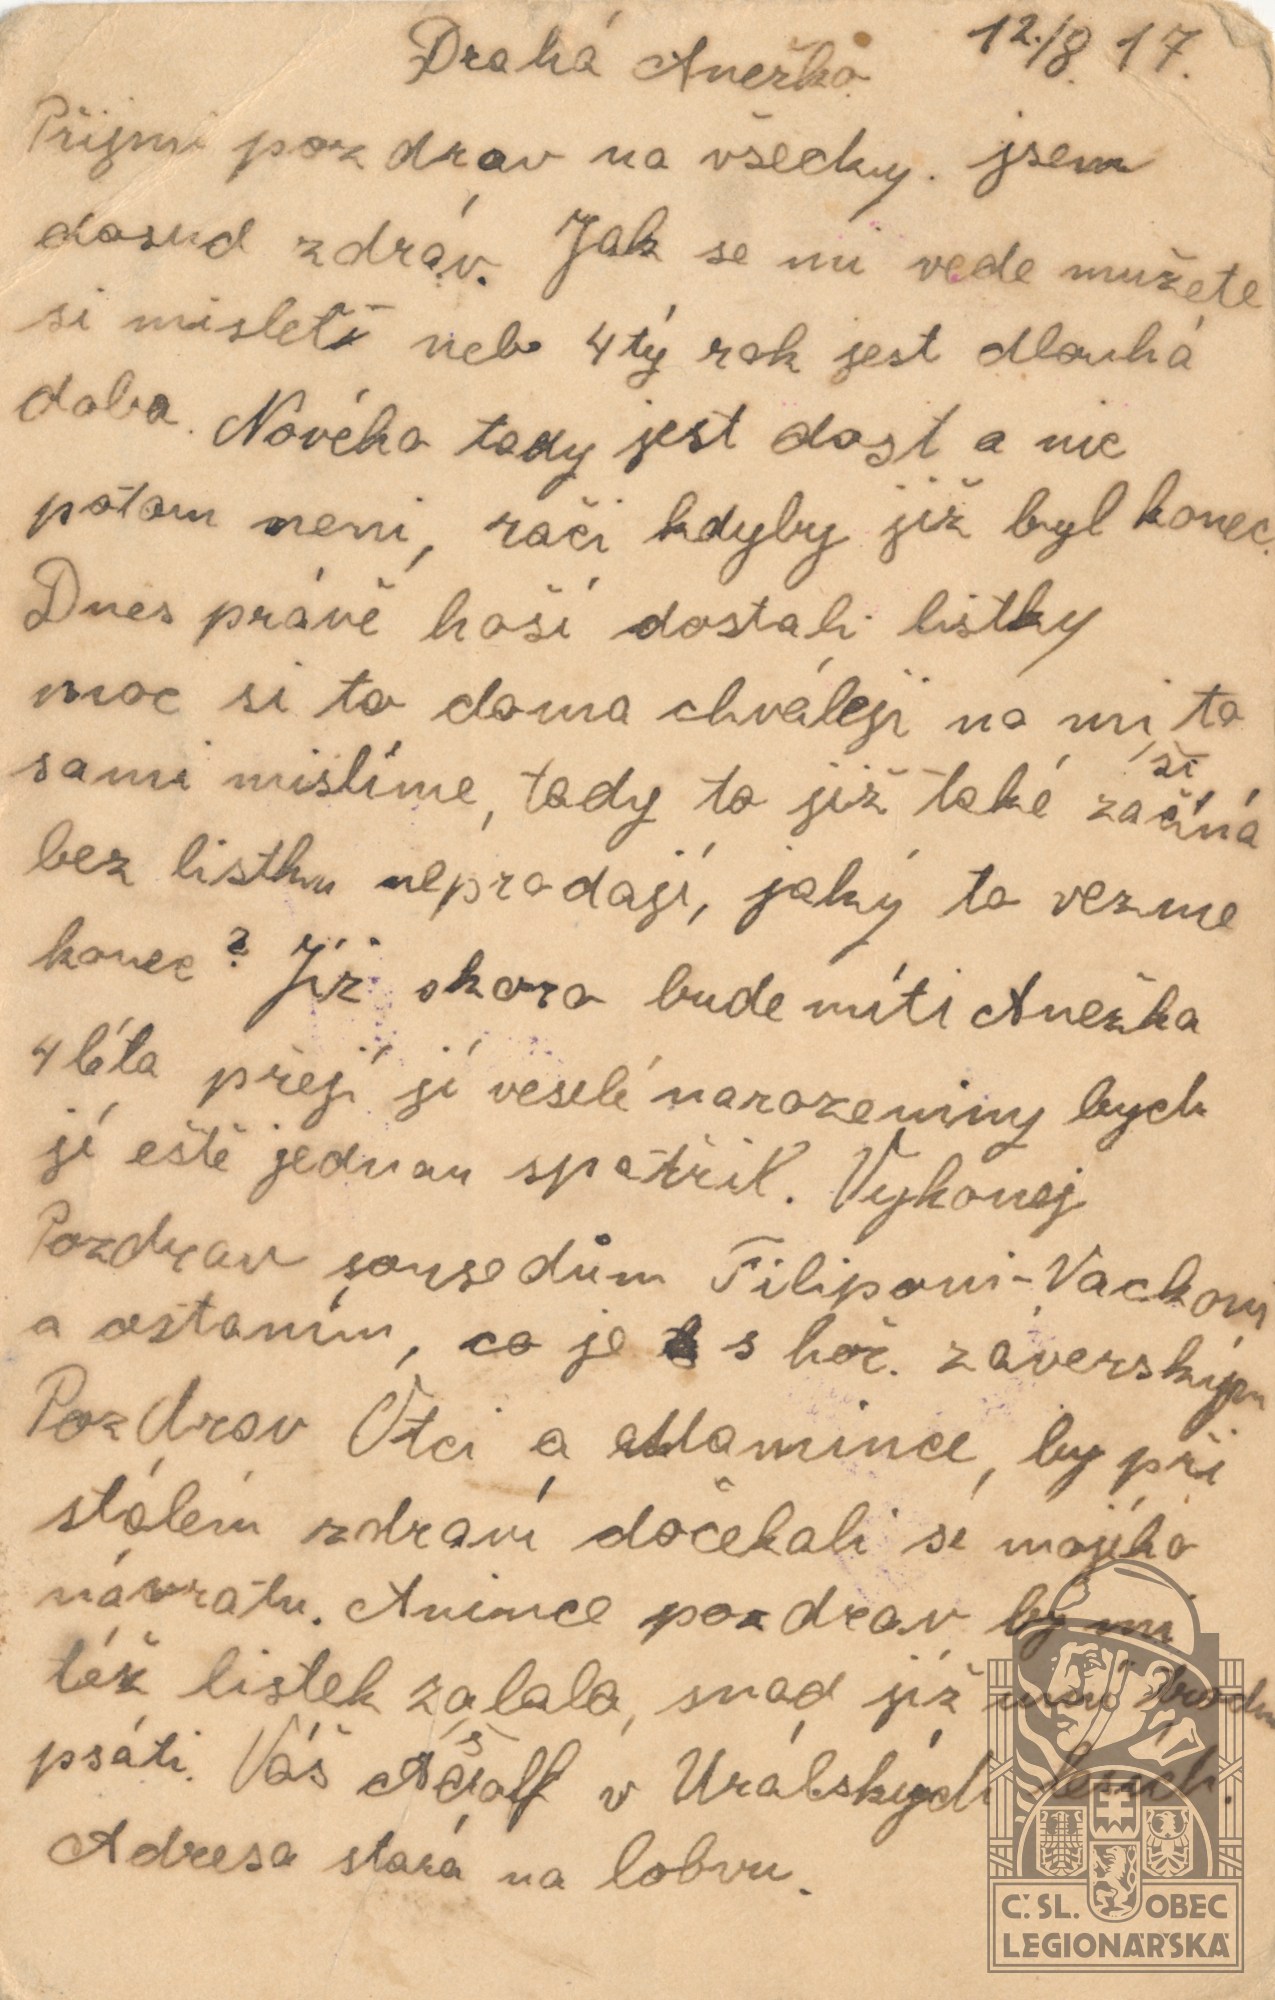 Drahá Anežko 12./8. 17.
Přijmi pozdrav na všecky. jsem
dosud zdráv. Jak se mi vede mužete
si misleti neb 4tý rok jest dlouhá
doba. Nového tady jest dost a nic
potom neni, rači kdyby již byl konec.
Dnes právě hoší dostali listky
moc si to doma chváleji no mi to
sami mislíme, tady to již také začíná
bez listku neprodají, jaký to vezme
konec? Již skoro bude míti Anežka
4 léta přeji jí veselé narozeniny bych
jí eště jednou spatřil. Vykonej
Pozdrav sousedům Filipovi-Vackovi
a ostaním, co je s hoč. záverským
Pozdrav Otci a Mamince, by při
stálém zdraví dočekali se mojého
návratu. Anince pozdrav by mi
též listek zalala, snad již umí trochu
psáti. Váš Adolf v Urálských lesich.
Adresa stará na lobvu.
Č. SL. OBEC
LEGIONÁŘSKÁ